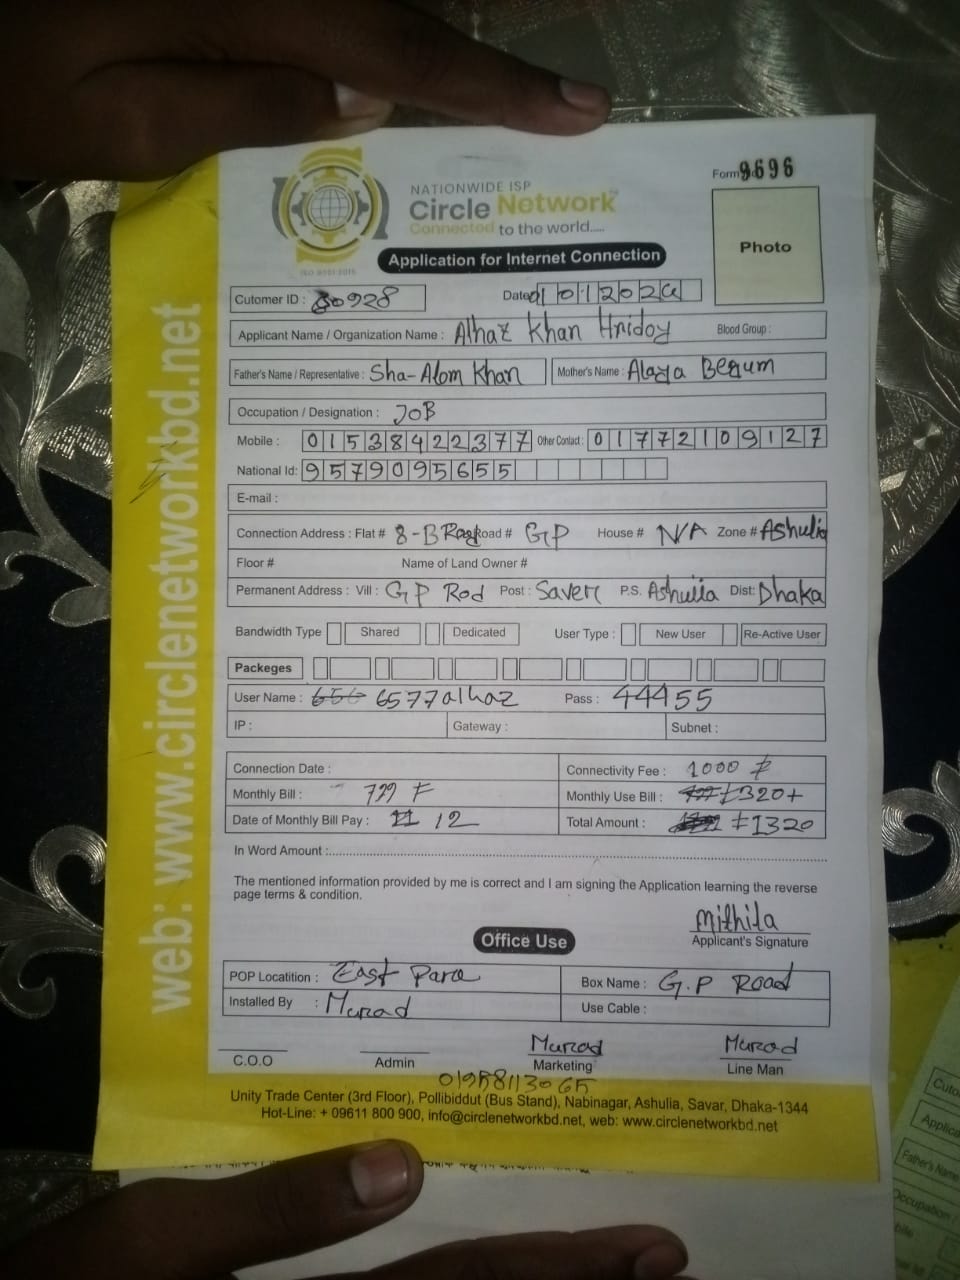 Form 9696
NATIONWIDE ISP
Circle Network™
Connected to the world.....
ISO 9001:2015
Photo
Application for Internet Connection
Cutomer ID : 30928
Date 01012024
Applicant Name / Organization Name : Alhaz Khan Hridoy Blood Group :
Father's Name / Representative : Sha-Alom Khan Mother's Name : Alaya Begum
Occupation / Designation : JOB
Mobile : 01538422377 Other Contact : 01772109127
National Id: 9579095655
E-mail :
Connection Address : Flat # 8-B Road # GP House # N/A Zone # Ashulia
Floor # Name of Land Owner #
Permanent Address : Vill : GP Rod Post : Saver P.S. Ashulia Dist: Dhaka
Bandwidth Type Shared Dedicated User Type : New User Re-Active User
Packeges
User Name : 656 6577alhaz Pass : 44455
IP : Gateway : Subnet :
Connection Date : Connectivity Fee : 1000 ৳
Monthly Bill : 799 ৳ Monthly Use Bill : ৳320+
Date of Monthly Bill Pay : 11 12 Total Amount : ৳1320
In Word Amount :
The mentioned information provided by me is correct and I am signing the Application learning the reverse
page terms & condition.
Mithila
Applicant's Signature
Office Use
POP Locatition : East Para Box Name : G.P Road
Installed By : Murad Use Cable :
Murad Murad
C.O.O Admin Marketing Line Man
Unity Trade Center (3rd Floor), Pollibiddut (Bus Stand), Nabinagar, Ashulia, Savar, Dhaka-1344
Hot-Line: + 09611 800 900, info@circlenetworkbd.net, web: www.circlenetworkbd.net
web: www.circlenetworkbd.net
Cuto
Applica
Father's Name
Occupation /